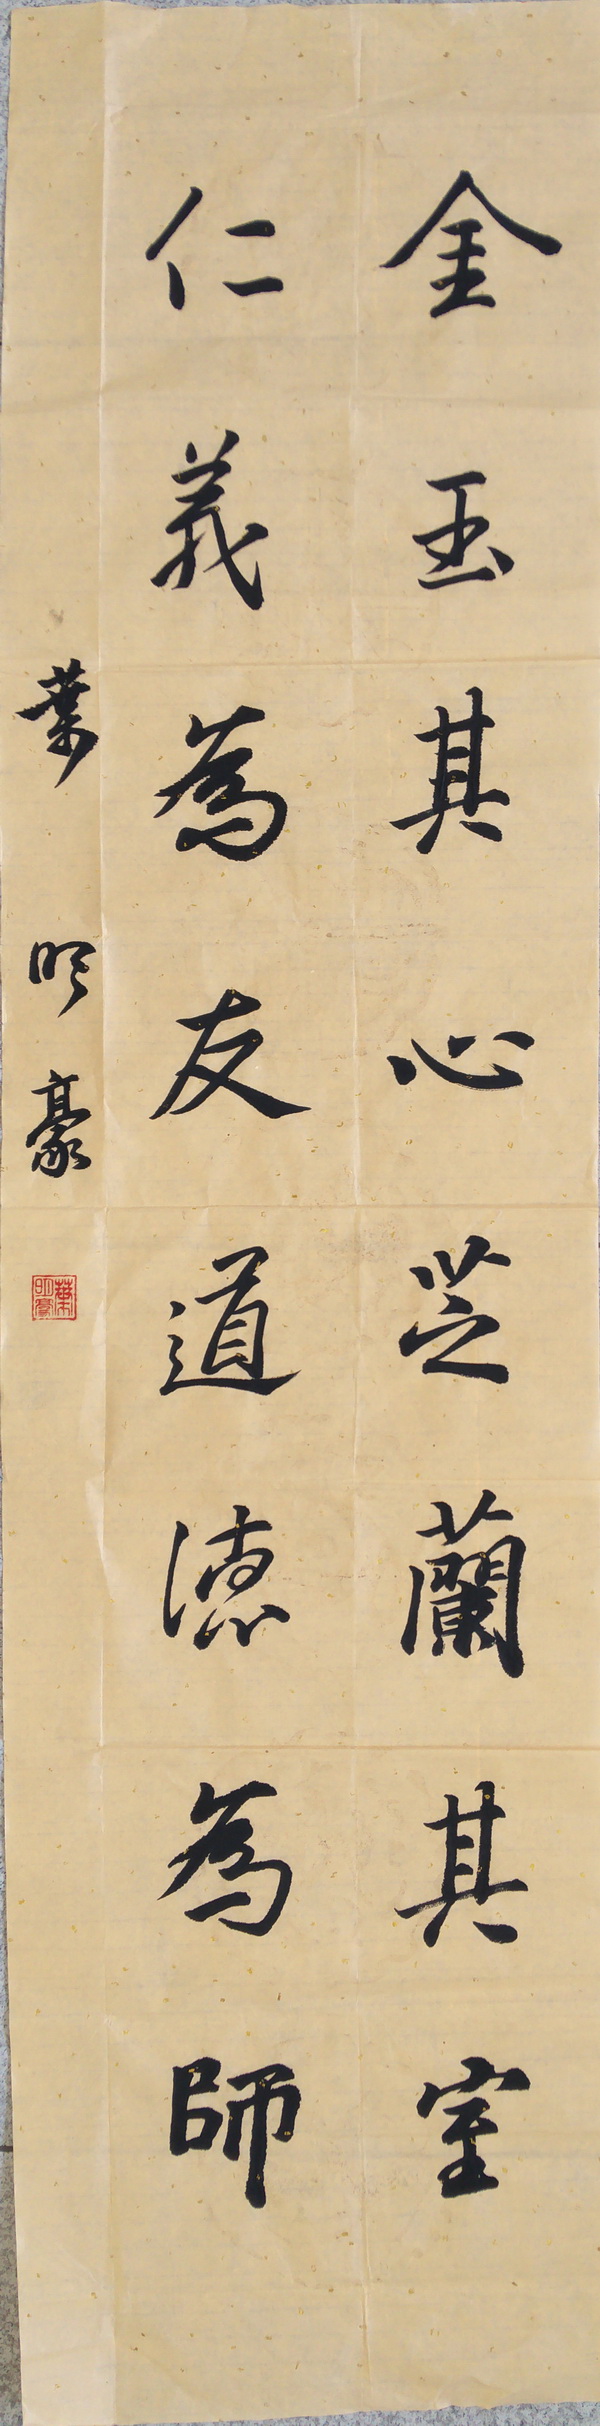 金玉其心芝蘭其室
仁義為友道德為師
葉明豪
葉明豪